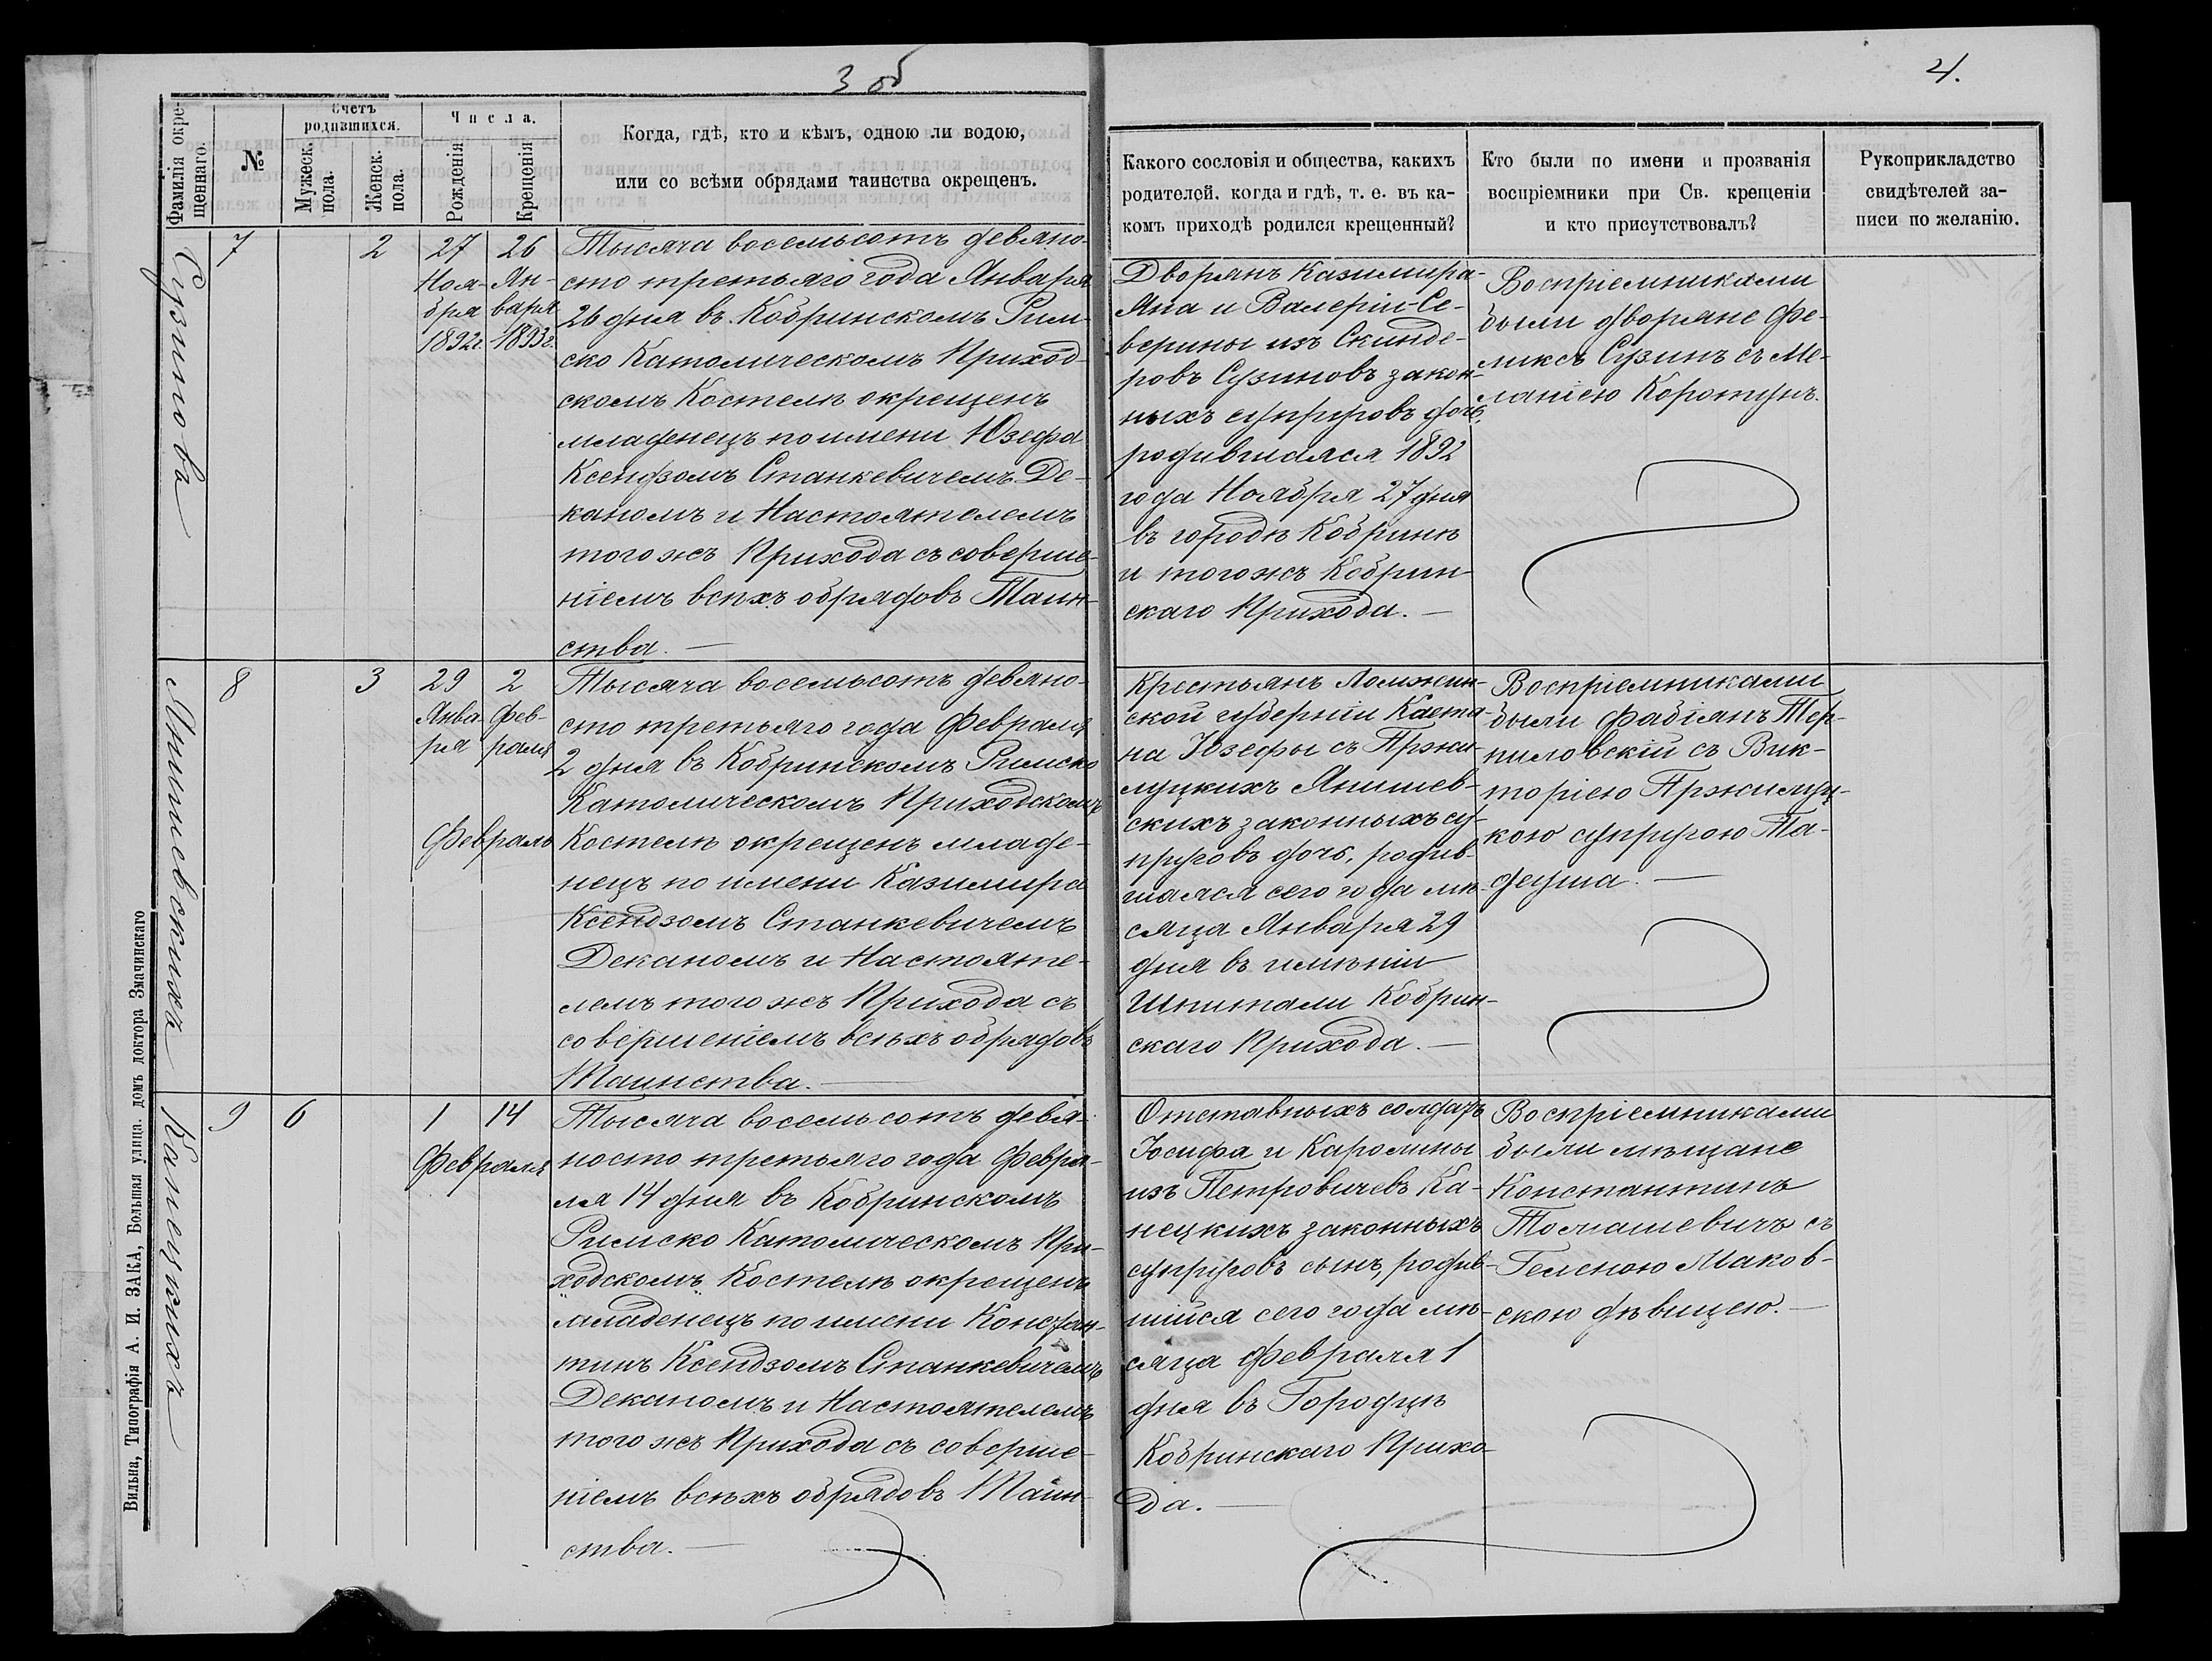 3 об
4.
Фамилія окре-
щеннаго.
№
Счетъ
родившихся.
Мужеск.
пола.
Женск.
пола.
Числа.
Рожденія
Крещенія
Когда, гдѣ, кто и кѣмъ, одною ли водою,
или со всѣми обрядами таинства окрещенъ.
Какого сословія и общества, какихъ
родителей, когда и гдѣ, т. е. въ ка-
комъ приходѣ родился крещенный?
Кто были по имени и прозванія
воспріемники при Св. крещеніи
и кто присутствовалъ?
Рукоприкладство
свидѣтелей за-
писи по желанію.
Сузинова
7
2
27
Ноя-
бря
1892г.
26
Ян-
варя
1893г.
Тысяча восемьсотъ девяно-
сто третьяго года Января
26 дня въ Кобринскомъ Рим-
ско Католическомъ Приход-
скомъ Костелѣ окрещенъ
младенецъ по имени Юзефа
Ксендзомъ Станкевичемъ Де-
каномъ и Настоятелемъ
того жъ Прихода съ соверше-
ніемъ всѣхъ обрядовъ Таин-
ства. —
Дворянъ Казимира-
Яна и Валеріи-Се-
верины изъ Скинде-
ровъ Сузиновъ закон-
ныхъ супруговъ дочь,
родившаяся 1892
года Ноября 27 дня
въ городѣ Кобринѣ
и того жъ Кобрин-
скаго Прихода. —
Воспріемниками
были дворяне Фе-
ликсъ Сузинъ съ Ме-
ланіею Коротунъ.
Янишевскихъ
8
3
29
Янва-
ря
2
Фев-
раля
Февраль
Тысяча восемьсотъ девяно-
сто третьяго года Февраля
2 дня въ Кобринскомъ Римско
Католическомъ Приходскомъ
Костелѣ окрещенъ младе-
нецъ по имени Казимира
Ксендзомъ Станкевичемъ
Деканомъ и Настояте-
лемъ того жъ Прихода съ
совершеніемъ всѣхъ обрядовъ
Таинства. —
Крестьянъ Ломжин-
ской губерніи Каета-
на Юзефы съ Пржи-
луцкихъ Янишев-
скихъ законныхъ су-
пруговъ дочь, родив-
шаяся сего года мѣ-
сяца Января 29
дня въ имѣніи
Шпитали Кобрин-
скаго Прихода. —
Воспріемниками
были Фабіянъ Тер-
пиловскій съ Вик-
торіею Пржилуц-
кою супругою Та-
деуша. —
Канецкихъ
9
6
1
14
Февраля
Тысяча восемьсотъ девя-
носто третьяго года Февра-
ля 14 дня въ Кобринскомъ
Римско Католическомъ При-
ходскомъ Костелѣ окрещенъ
младенецъ по имени Констан-
тинъ Ксендзомъ Станкевичемъ
Деканомъ и Настоятелемъ
того жъ Прихода съ соверше-
ніемъ всѣхъ обрядовъ Таин-
ства. —
Отставныхъ солдатъ
Іосифа и Каролины
изъ Петровичевъ Ка-
нецкихъ законныхъ
супруговъ сынъ, родив-
шійся сего года мѣ-
сяца Февраля 1
дня въ Городцѣ
Кобринскаго Прихо-
да. —
Воспріемниками
были мѣщане
Константинъ
Томашевичъ съ
Геленою Маков-
скою дѣвицею. —
Вильна, Типографія А. И. ЗАКА, Большая улица. домъ доктора Змачинскаго